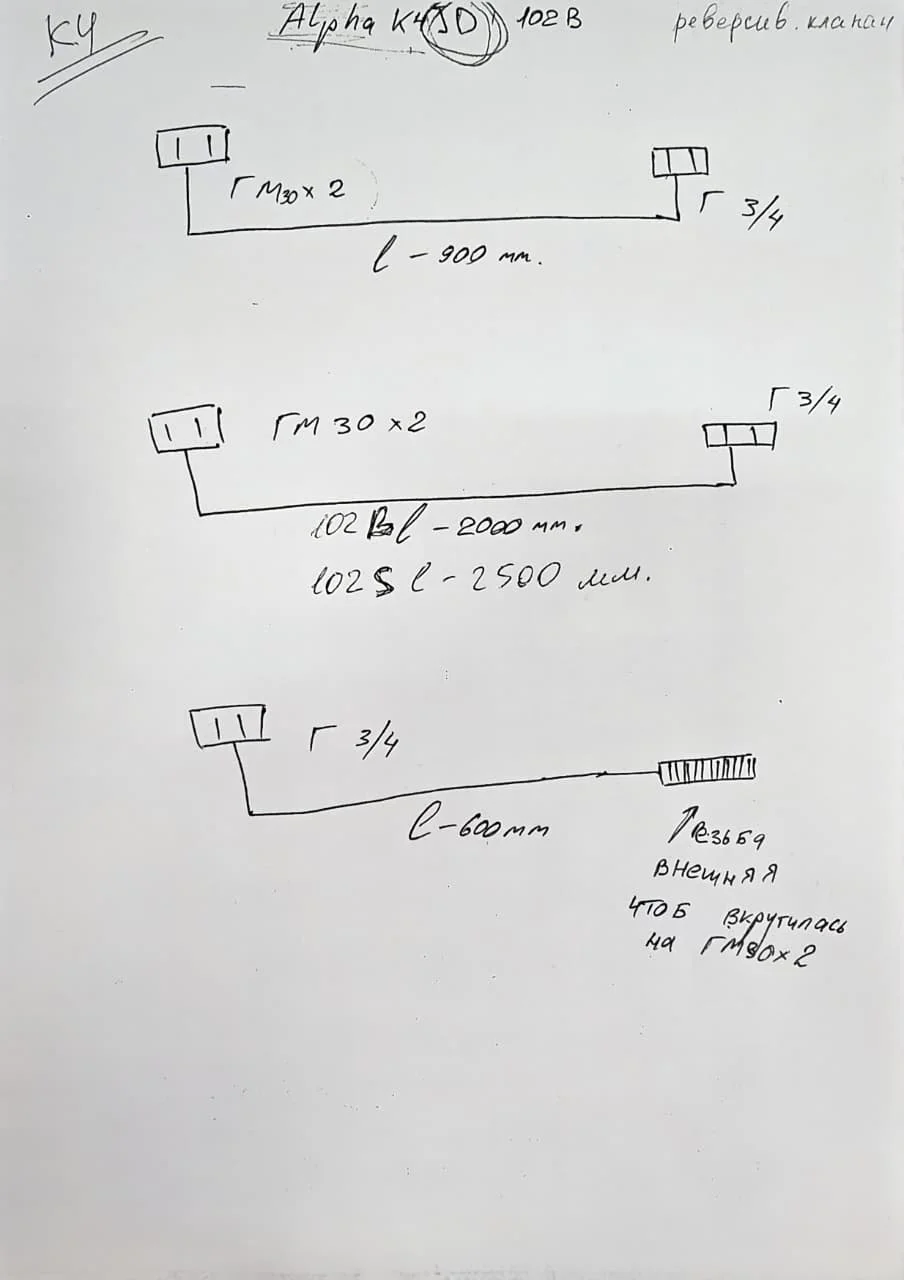 КЧ
Alpha КЧ JD 102В
реверсив. клапан
Г М30 х 2
Г 3/4
l - 900 мм.
Г 3/4
ГМ 30 х 2
102В l - 2000 мм.
102S l - 2500 мм.
Г 3/4
l - 600 мм
Резьба
внешняя
чтоб вкрутилась
на ГМ30х2